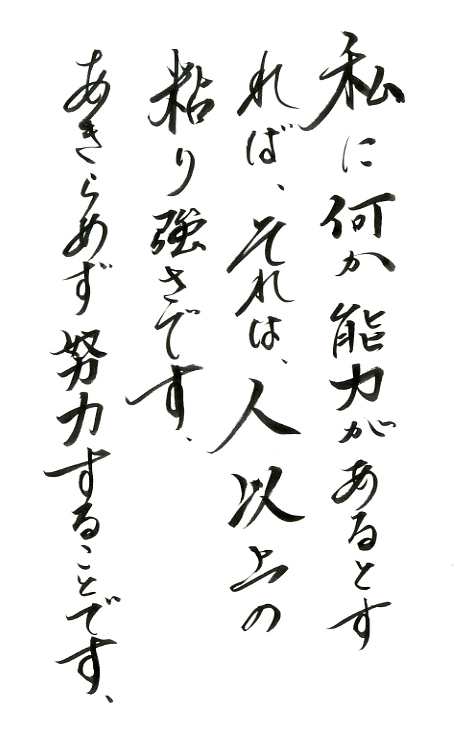 私に何か能力があるとす
れば、それは、人以上の
粘り強さです、
あきらめず努力することです、